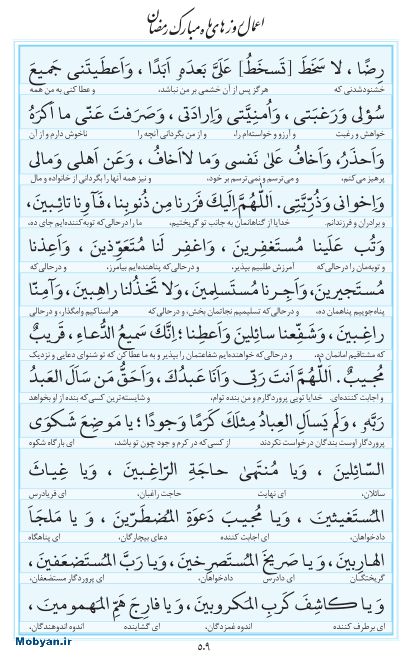 اعمال روزهای ماه مبارک رمضان
رِضًا، لا سَخَطَ [تَسخَطُ] عَلَیَّ بَعدَهُ اَبَدًا، وَاَعطَیتَنی جَمیعَ
خشنودشدنی که هرگز پس از آن خشمی بر من نباشد، و عطا کنی به من همه
سُؤلی وَرَغبَتی، وَاُمنِیَّتی وَاِرادَتی، وَصَرَفتَ عَنّی ما اَکرَهُ
خواهش و رغبت و آرزو و خواسته‌ام را، و از من بگردانی آنچه را ناخوش دارم و از آن
وَاَحذَرُ، وَاَخافُ عَلیٰ نَفسی وَما لااَخافُ، وَعَن اَهلی وَمالی
پرهیز می‌کنم، و می‌ترسم و نمی‌ترسم بر خود، و نیز همه آنها را بگردانی از خانواده و مال
وَاِخوانی وَذُرِّیَّتی. اَللّٰهُمَّ اِلَیکَ فَرَرنا مِن ذُنوبِنا، فَـآوِنا تائِبینَ،
و برادران و فرزندانم. خدایا از گناهانمان به جانب تو گریختیم، ما را درحالی که توبه‌کننده‌ایم جای ده،
وَتُب عَلَینا مُستَغفِرینَ، وَاغفِر لَنا مُتَعَوِّذینَ، وَاَعِذنا
و توبه‌مان را درحالی که آمرزش طلبیم بپذیر، و درحالی که پناهنده‌ایم بیامرز، و درحالی که
مُستَجیرینَ، وَاَجِرنا مُستَسلِمینَ، وَلا تَخذُلنا راهِبینَ، وَآمِنّا
پناه‌جوییم پناهمان ده، و درحالی که تسلیمیم نجاتمان بخش، و درحالی که هراسناکیم وامگذار، و درحالی
راغِبینَ، وَشَفِّعنا سائِلینَ وَاَعطِنا؛ اِنَّکَ سَمیعُ الدُّعاءِ، قَریبٌ
که مشتاقیم امانمان ده، و درحالی که خواهنده‌ایم شفاعتمان را بپذیر و به ما عطا کن که تو شنوای دعایی و نزدیک
مُجیبٌ. اَللّٰهُمَّ اَنتَ رَبّی وَاَنَا عَبدُکَ، وَاَحَقُّ مَن سَاَلَ العَبدُ
و اجابت کننده‌ای. خدایا تویی پروردگارم و من بنده توام، و شایسته‌ترین کسی که بنده از او بخواهد
رَبَّهُ، وَلَم یَساَلِ العِبادُ مِثلَکَ کَرَمًا وَجودًا؛ یا مَوضِعَ شَکوَی
پروردگار اوست بندگان درخواست نکردند از کسی که در کرم و جود چون تو باشد، ای بارگاه شکوه
السّائِلینَ، وَیا مُنتَهیٰ حاجَةِ الرّاغِبینَ، وَیا غِیاثَ
سائلان، ای نهایت حاجت راغبان، ای فریادرس
المُستَغیثینَ، وَیا مُجیبَ دَعوَةِ المُضطَرّینَ، وَ یا مَلجَاَ
دادخواهان، ای اجابت کننده دعای بیچارگان، ای پناهگاه
الهارِبینَ، وَیا صَریخَ المُستَصرِخینَ، وَیا رَبَّ المُستَضعَفینَ،
گریختگان ای دادرس دادخواهان، ای پروردگار مستضعفان،
وَیا کاشِفَ کَربِ المَکروبینَ، وَیا فارِجَ هَمِّ المَهمومینَ،
ای برطرف کننده اندوه غمزدگان، ای گشاینده اندوه اندوهندگان،
۵۰۹
Mobyan.ir